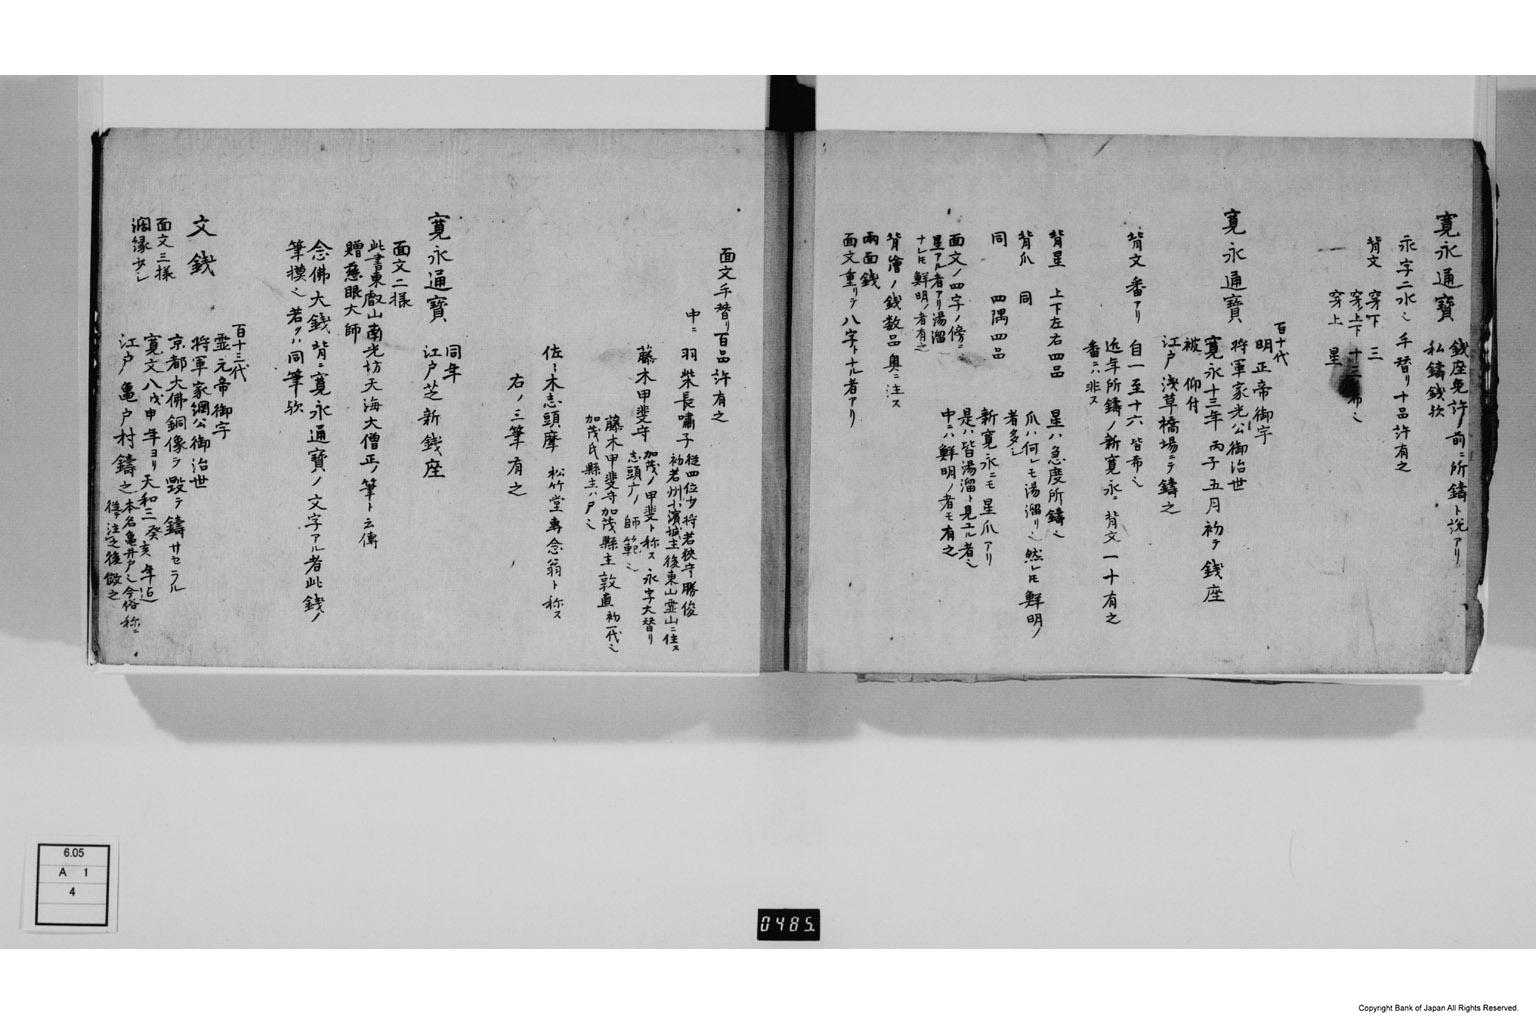 寛永通寳
錢座免許ノ前ニ所鑄ト説アリ
私鑄錢欤
永字二水ミ 手替リ十品許有之
背文 穿下 三
穿上下 十三 希ミ
穿上 星
寛永通寳
百十代
明正帝御宇
将軍家光公御治世
寛永十三年 丙子五月 初テ錢座
被 仰付
江戸 浅草橋場ニテ鑄之
背文 番アリ 自一至十六 皆希ミ
近年所鑄ノ新寛永ニ背文一十有之
番ニハ非ス
背星 上下左右四品 星ハ急度所鑄ミ
背爪 同 爪ハ何レモ湯溜リミ 然レ𪜈鮮明ノ
者多シ
同 四隅四品 新寛永ニモ星爪アリ
面文ノ四字ノ傍ニ
星アル者アリ湯溜
ナレ𪜈鮮明ノ者有之
是ハ皆湯溜ト見ユル者ミ
中ニハ鮮明ノ者モ有之
背繪ノ錢数品奥ニ注ス
兩面錢
面文重リテ八字トナル者アリ
面文手替リ百品許有之
中ニ 羽柴長嘯子 従四位少将若狭守勝俊
初若州小濱城主後東山霊山ニ住ス
藤木甲斐守 加茂ノ甲斐ト称ス 永字大替リ
志頭广ノ師範ミ
藤木甲斐守加茂縣主敦直 初一代ミ
加茂氏縣主ハ戸ミ
佐々木志頭摩 松竹堂專念翁ト称ス
右ノ三筆有之
寛永通寳
同年
江戸芝新錢座
面文二様
此書東叡山南光坊天海大僧正ノ筆ト云傳
贈慈眼大師
念佛大錢背ニ寛永通寳ノ文字アル者此錢ノ
筆摸ミ 若クハ同筆欤
文錢
百十三代
霊元帝御宇
将軍家綱公御治世
京都大佛銅像ヲ毀テ鑄サセラル
面文三様
濶縁少シ
寛文八戊申年ヨリ天和三癸亥年迠
江戸亀戸村鑄之
本名亀井戸ミ今俗称ニ
従テ注之後倣之
6.05
A 1
4
0485
Copyright Bank of Japan All Rights Reserved.